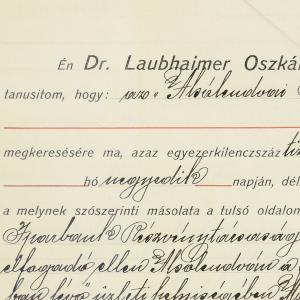 Én Dr. Laubhaimer Oszká
tanusitom, hogy: az „Alsólendvai
megkeresésére ma, azaz egyezerkilenczszáz ti
hó negyedik napján, dél
a melynek szószerinti másolata a tulsó oldalon
Iparbank Részvénytársaság
elfogadó ellen Alsólendván a
ban lévő üzleti helyiségében